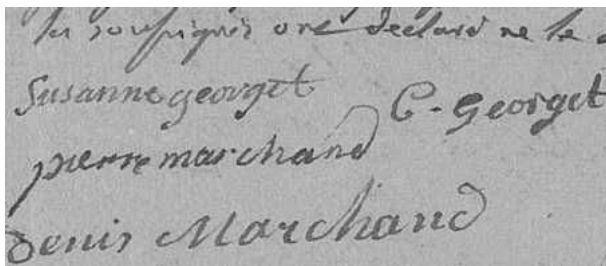 les soussignés ont declaré ne le
Susanne georget
C. Georget
pierre marchand
denis Marchand